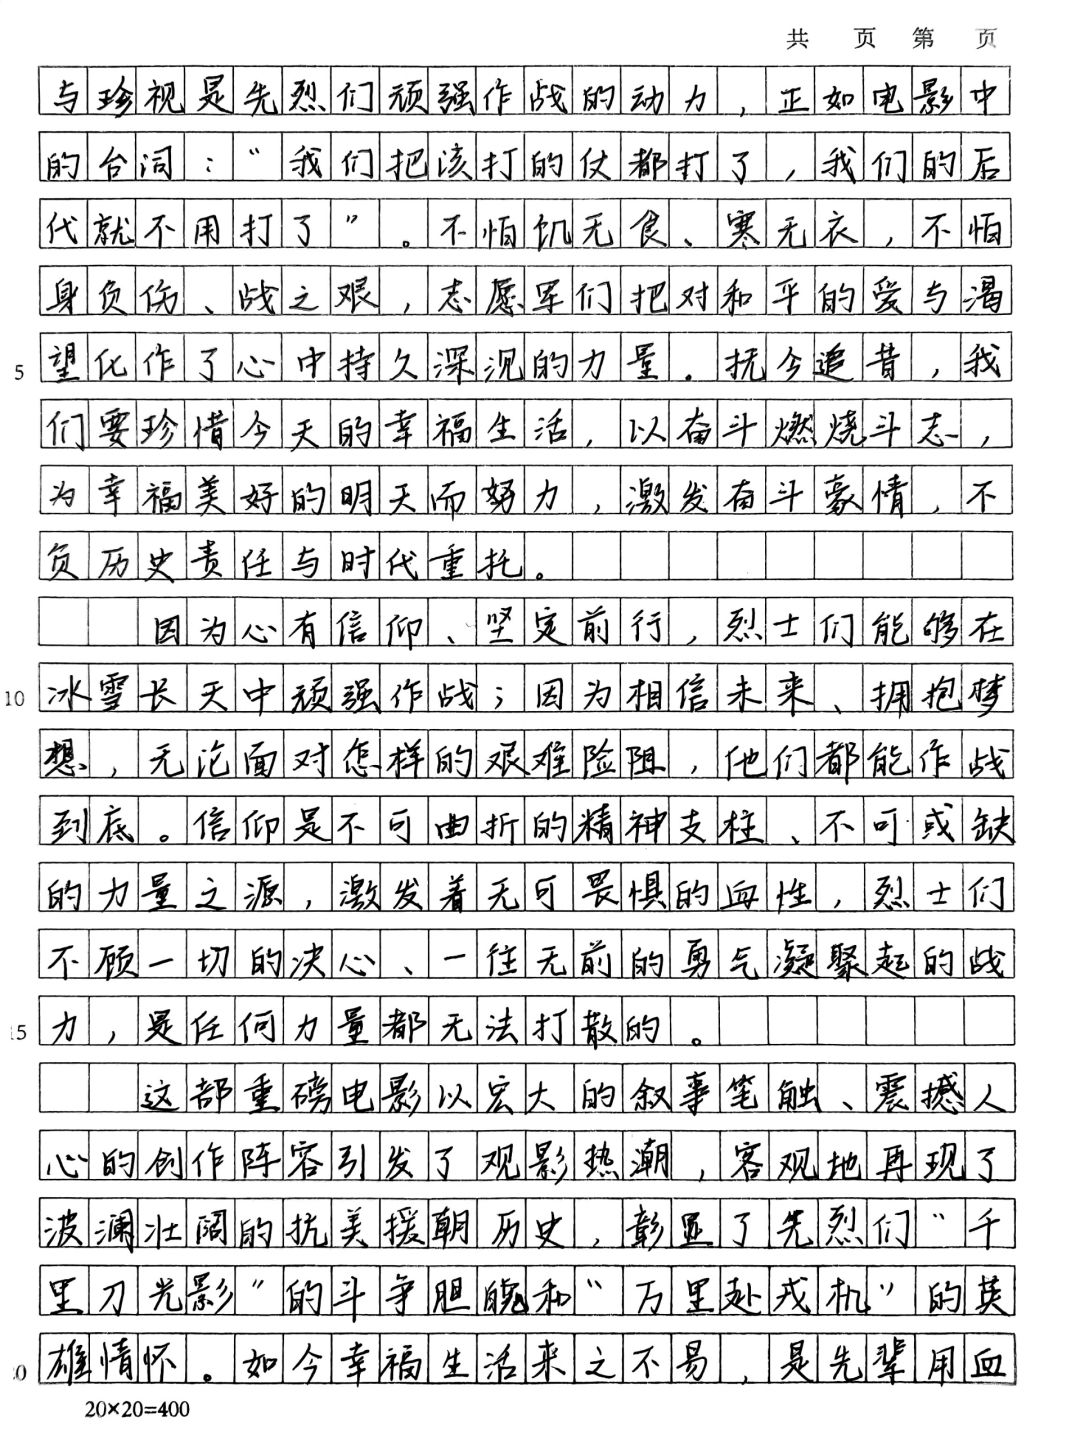 共 页 第 页
与珍视是先烈们顽强作战的动力，正如电影中
的台词：“我们把该打的仗都打了，我们的后
代就不用打了”。不怕饥无食、寒无衣，不怕
身负伤、战之艰，志愿军们把对和平的爱与渴
5 望化作了心中持久深沉的力量．抚今追昔，我
们要珍惜今天的幸福生活，以奋斗燃烧斗志，
为幸福美好的明天而努力，激发奋斗豪情，不
负历史责任与时代重托。
因为心有信仰、坚定前行，烈士们能够在
10 冰雪长天中顽强作战；因为相信未来、拥抱梦
想，无论面对怎样的艰难险阻，他们都能作战
到底。信仰是不可曲折的精神支柱、不可或缺
的力量之源，激发着无可畏惧的血性，烈士们
不顾一切的决心、一往无前的勇气凝聚起的战
15 力，是任何力量都无法打散的。
这部重磅电影以宏大的叙事笔触、震撼人
心的创作阵容引发了观影热潮，客观地再现了
波澜壮阔的抗美援朝历史，彰显了先烈们“千
里刀光影”的斗争胆魄和“万里赴戎机”的英
0 雄情怀。如今幸福生活来之不易，是先辈用血
20×20=400